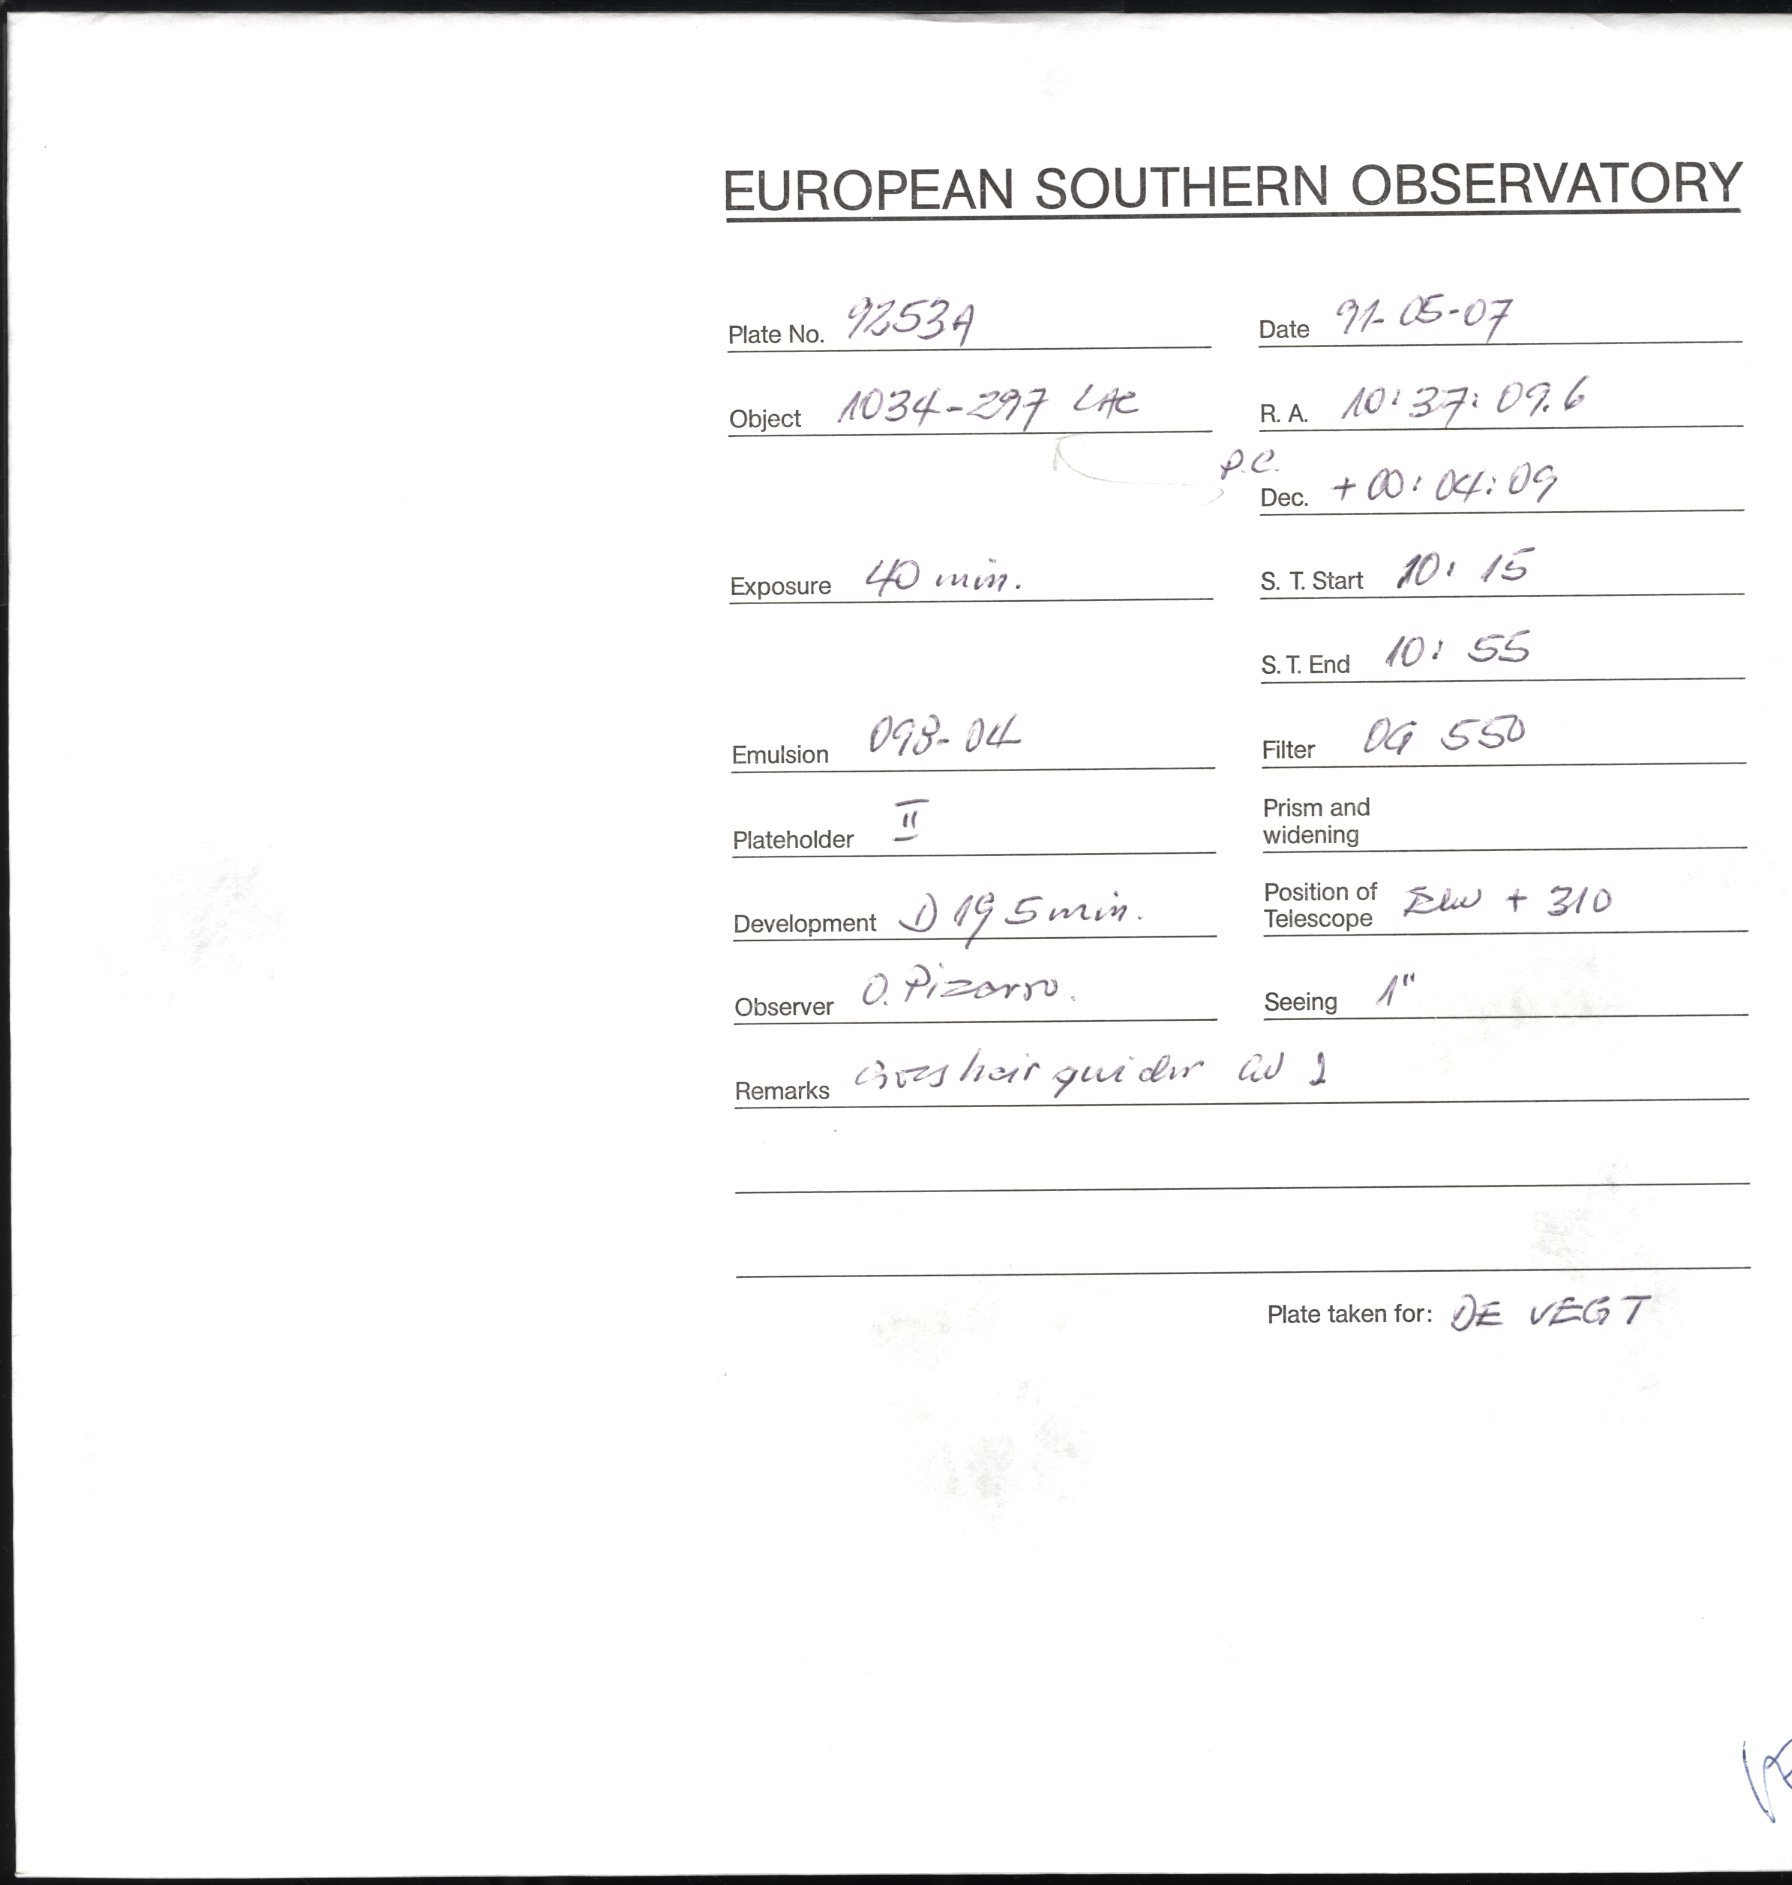 EUROPEAN SOUTHERN OBSERVATORY
Plate No. 9253A
Date 91-05-07
Object 1034-297
R. A. 10:37:09.6
P.C.
Dec. +00:04:09
Exposure 40 min.
S. T. Start 10:15
S. T. End 10:55
Emulsion 098-04
Filter OG 550
Plateholder II
Prism and
widening
Development D 19 5 min.
Position of
Telescope + 310
Observer O. Pizarro.
Seeing 1"
Remarks guider
Plate taken for: DE VEGT